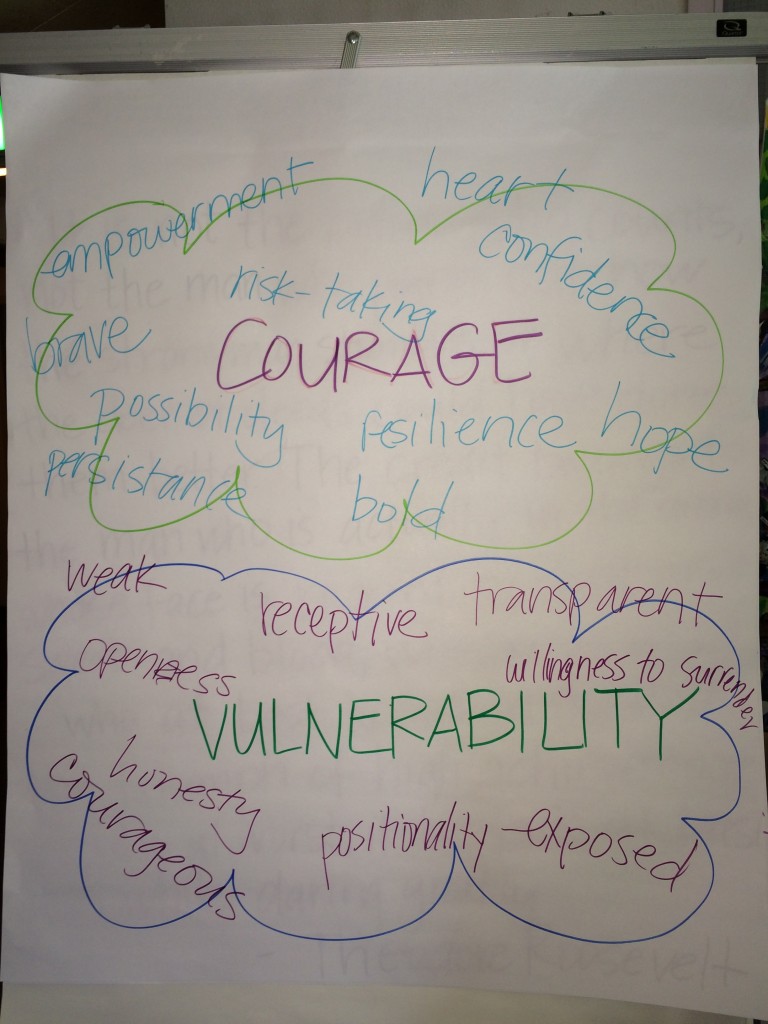 empowerment
heart
confidence
risk-taking
brave
COURAGE
possibility
resilience
hope
persistance
bold
weak
receptive
transparent
openness
willingness to surrender
VULNERABILITY
honesty
courageous
positionality
exposed
- Theodore Roosevelt